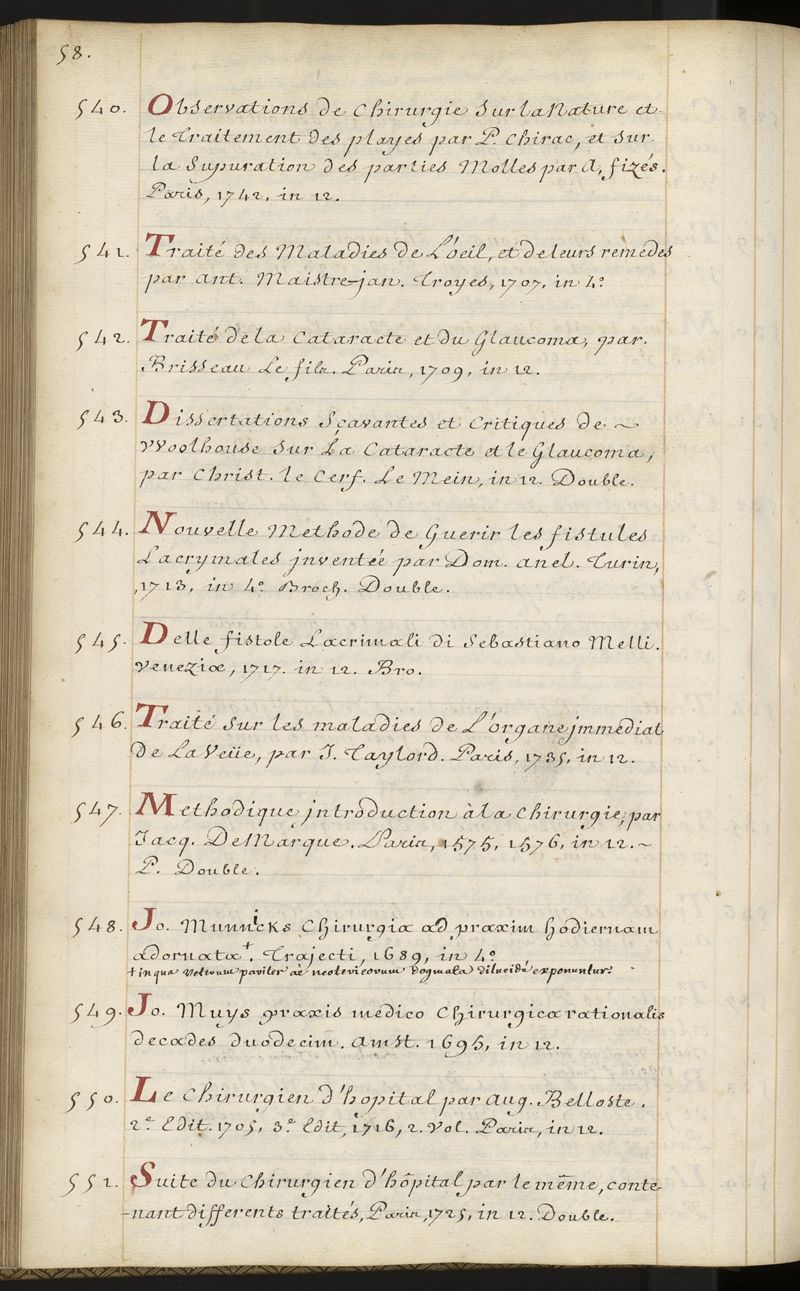 58.
540. Observations de Chirurgie sur la Nature et
le Traitement des playes par P. Chirac, et sur
la Supuration des parties Molles par A. fizés.
Paris, 1742. in 12.
541. Traité des Maladies de L'oeil, et de leurs remedes
par Ant. Maistre-jan. Troyes, 1707. in 4°
542. Traité de la Cataracte et du Glaucoma, par.
Brisseau Le fils. Paris, 1709, in 12.
543. Dissertations Sçavantes et Critiques de ~
VVoolhouse sur La Cataracte et le Glaucoma,
par Christ. le Cerf. Le Mein, in 12. Double.
544. Nouvelle Methode de Guerir les fistules
Lacrymales jnventée par Dom. anel. Turin,
1713, in 4° Broch. Double.
545. Delle fistole Lacrimali di Sebastiano Melli.
Veneziæ, 1717. in 12. Bro.
546. Traité sur les maladies de L'organe jmmediat
de La Veüe, par J. Taylord. Paris, 1735, in 12.
547. Methodique jntroduction à la Chirurgie, par
Jacq. De Marque. Paris, 1575, 1576, in 12. ~
P. Double.
548. Jo. Munnicks Chirurgia ad praxim hodiernam
adornata +. Trajecti, 1689, in 4°
+ in qua Veterum pariter ac neotericorum dogmata dilucidè exponuntur.
549. Jo. Muys praxis medico Chirurgica rationalis
decades duodecim. Amst. 1695, in 12.
550. Le Chirurgien d'hopital par Aug. Belloste.
2e Edit. 1705, 3e Edit, 1716, 2. Vol. Paris, in 12.
552. Suite du Chirurgien d'hôpital par le même, conte-
-nant differents traités, Paris, 1725, in 12. Double.